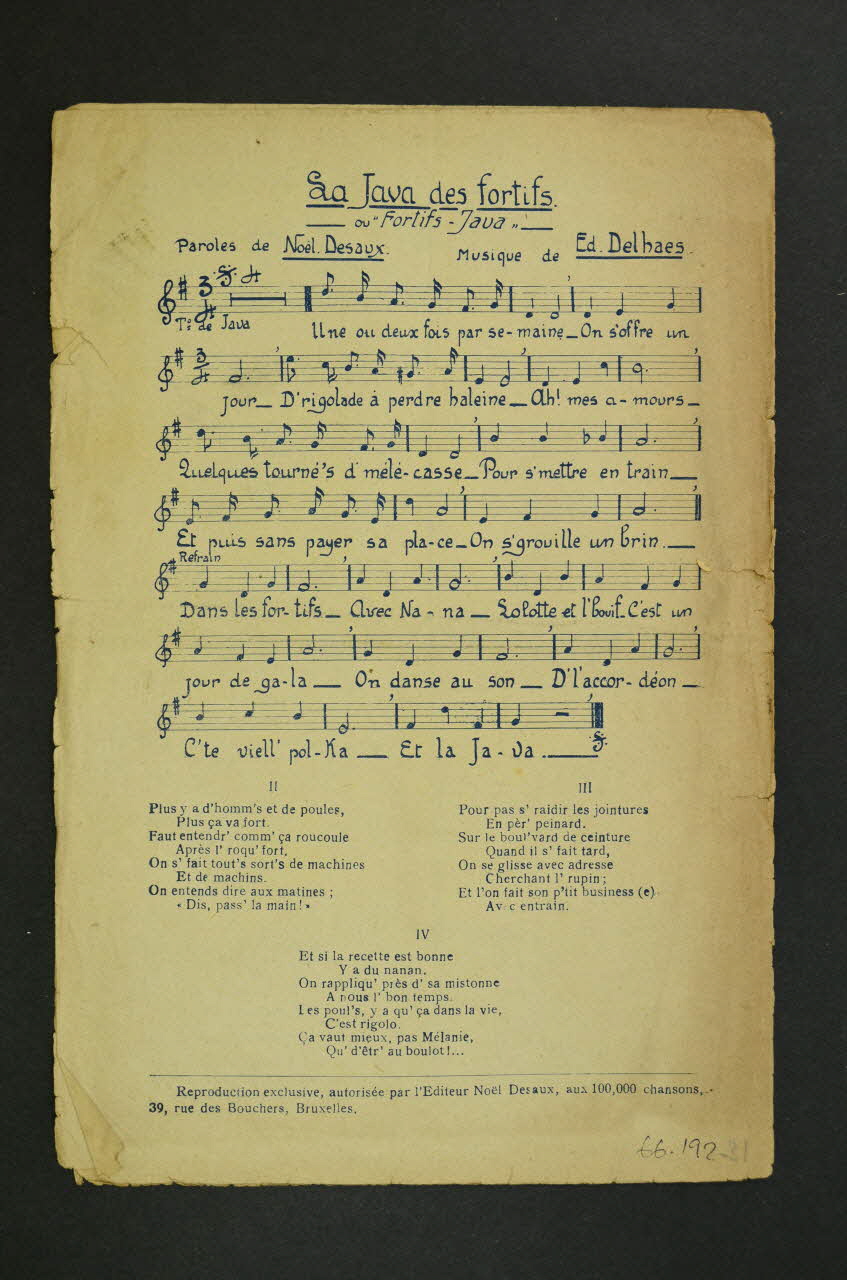 La Java des fortifs.
ou "Fortifs - Java"
Paroles de Noël. Desaux. Musique de Ed. Delhaes.
Tº: de Java
Une ou deux fois par se-maine_On s'offre un
jour_ D'rigolade à perdre haleine_Ah! mes a-mours_
Quelques tourné's d'mêlé-casse_Pour s'mettre en train_
Et puis sans payer sa pla-ce_On s'grouille un brin._
Refrain
Dans les for-tifs_ Avec Na-na_ Lolotte et l'bouif_C'est un
jour de ga-la_ On danse au son_ D'l'accor-déon_
C'te viell' pol-Ka_ Et la Ja-va._
II
Plus y a d'homm's et de poules,
Plus ça va fort.
Faut entendr' comm' ça roucoule
Après l' roqu'fort,
On s' fait tout's sort's de machines
Et de machins.
On entends dire aux matines ;
« Dis, pass' la main ! »
III
Pour pas s' raidir les jointures
En pèr' peinard.
Sur le boul'vard de ceinture
Quand il s' fait tard,
On se glisse avec adresse
Cherchant l' rupin ;
Et l'on fait son p'tit business (e)
Av c entrain.
IV
Et si la recette est bonne
Y a du nanan.
On rappliqu' près d' sa mistonne
A nous l' bon temps.
Les poul's, y a qu' ça dans la vie,
C'est rigolo.
Ça vaut mieux, pas Mélanie,
Qu' d'êtr' au boulot !...
Reproduction exclusive, autorisée par l'Editeur Noël Desaux, aux 100,000 chansons,
39, rue des Bouchers, Bruxelles.
66.192.31